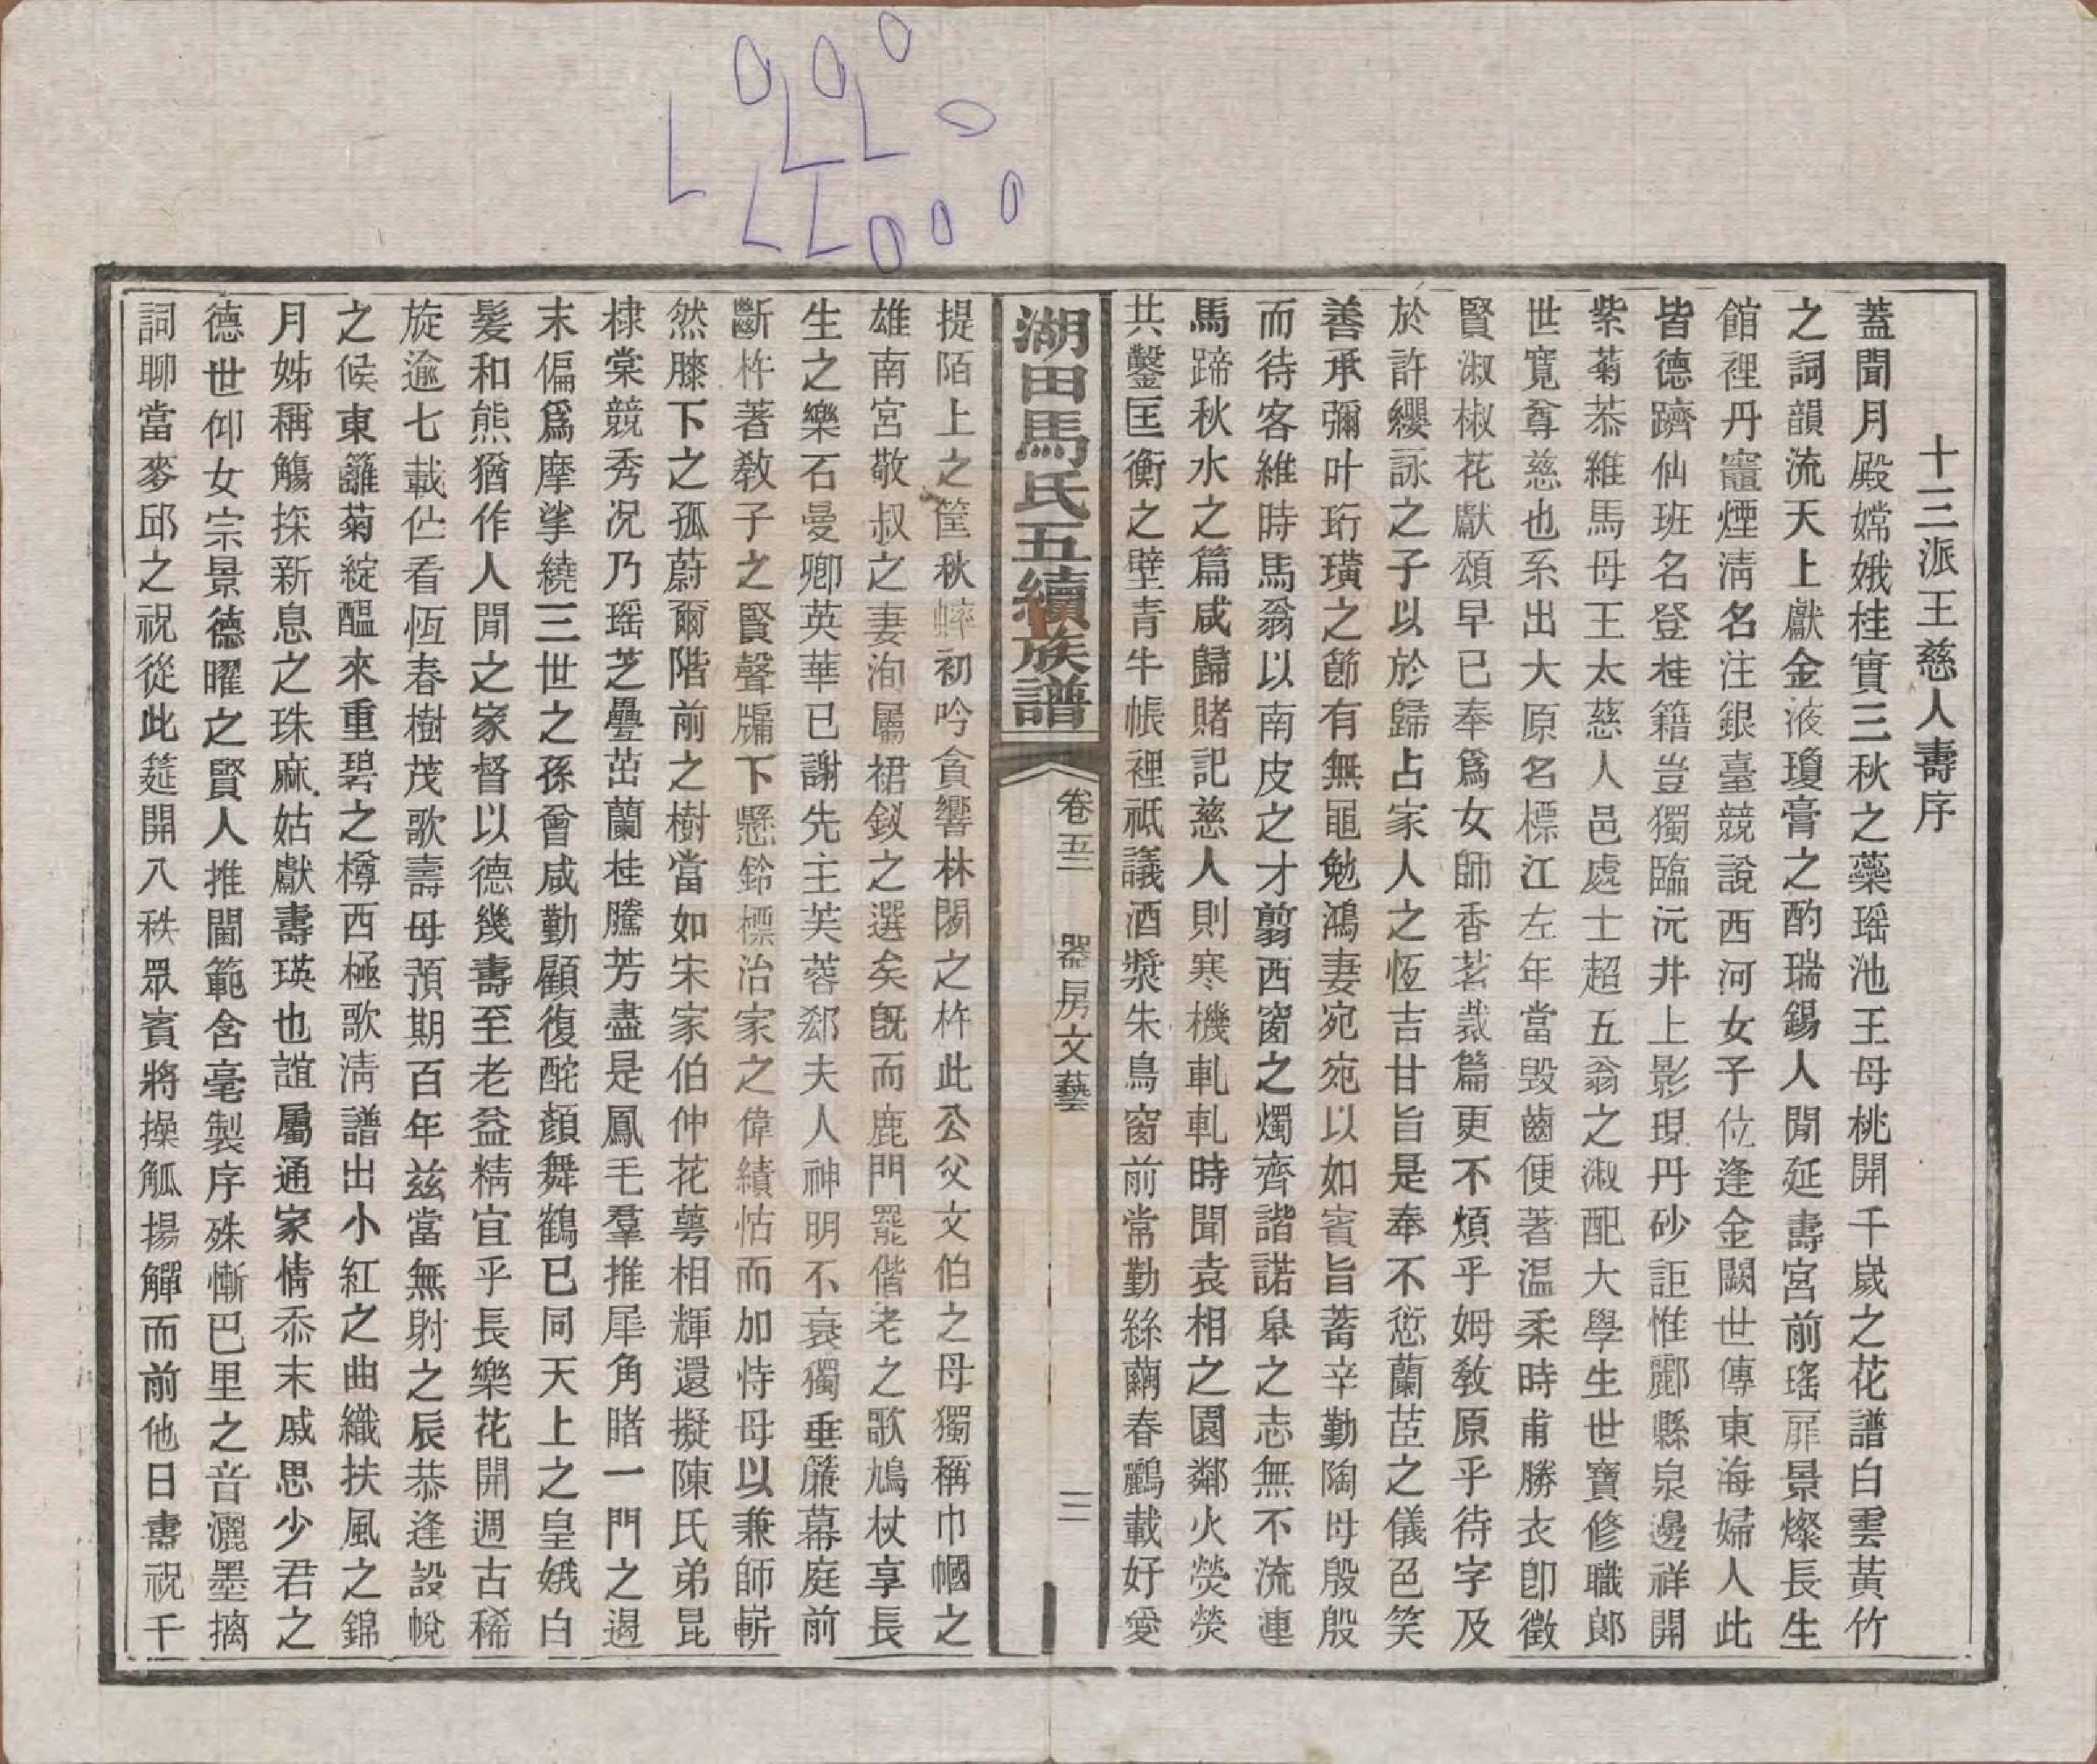 十三派王慈人壽序
蓋聞月殿嫦娥桂實三秋之藥瑶池王母桃開千嵗之花譜白雲黃竹
之詞韻流天上獻金液瓊膏之酌瑞錫人閒延壽宮前瑤扉景燦長生
館裡丹竈煙清名注銀臺競說西河女子位逢金闕世傳東海婦人此
皆德躋仙班名登桂籍豈獨臨沅井上影現丹砂詎惟酈縣泉邊祥開
紫菊恭維馬母王太慈人邑處士超五翁之淑配大學生世寶修職郎
世寬尊慈也系出大原名標江左年當毀齒便著溫柔時甫勝衣卽徵
賢淑椒花獻頌早已奉爲女師香茗裁篇更不煩乎姆敎原乎待字及
於許纓詠之子以於歸占家人之恆吉甘旨是奉不愆蘭茝之儀色笑
善承彌叶珩璜之節有無黽勉鴻妻宛宛以如賓旨蓄辛勤陶母殷殷
而待客維時馬翁以南皮之才翦西窗之燭齊諧諾皋之志無不流連
馬蹄秋水之篇咸歸賭記慈人則寒機軋軋時聞袁相之園鄰火熒熒
共鑿匡衡之壁青牛帳裡祇議酒漿朱鳥窗前常勤絲繭春鸝載好愛
湖田馬氏五續族譜
卷五二 器房文藝
三
提陌上之筐秋蟀初吟貪響林閒之杵此公父文伯之母獨稱巾幗之
雄南宮敬叔之妻洵屬裙釵之選矣旣而鹿門罷偕老之歌鳩杖享長
生之樂石曼卿英華已謝先主芙蓉郄夫人神明不衰獨垂簾幕庭前
斷杵著敎子之賢聲牖下懸鈴標治家之偉績怙而加恃母以兼師嶄
然膝下之孤蔚爾階前之樹當如宋家伯仲花萼相輝還擬陳氏弟昆
棣棠競秀况乃瑶芝疊茁蘭桂騰芳盡是鳳毛羣推犀角睹一門之遏
末偏爲摩挲繞三世之孫曾咸勤顧復酡顏舞鶴已同天上之皇娥白
髮和熊猶作人閒之家督以德幾壽至老益精宜乎長樂花開週古稀
旋逾七載伫看恆春樹茂歌壽母預期百年兹當無射之辰恭逢設帨
之候東籬菊綻醖來重碧之樽西極歌淸譜出小紅之曲織扶風之錦
月姊稱觴探新息之珠麻姑獻壽瑛也誼屬通家情忝末戚思少君之
德世仰女宗景德曜之賢人推閫範含毫製序殊慚巴里之音灑墨摛
詞聊當麥邱之祝從此筵開八秩眾賓將操觚揚觶而前他日壽祝千